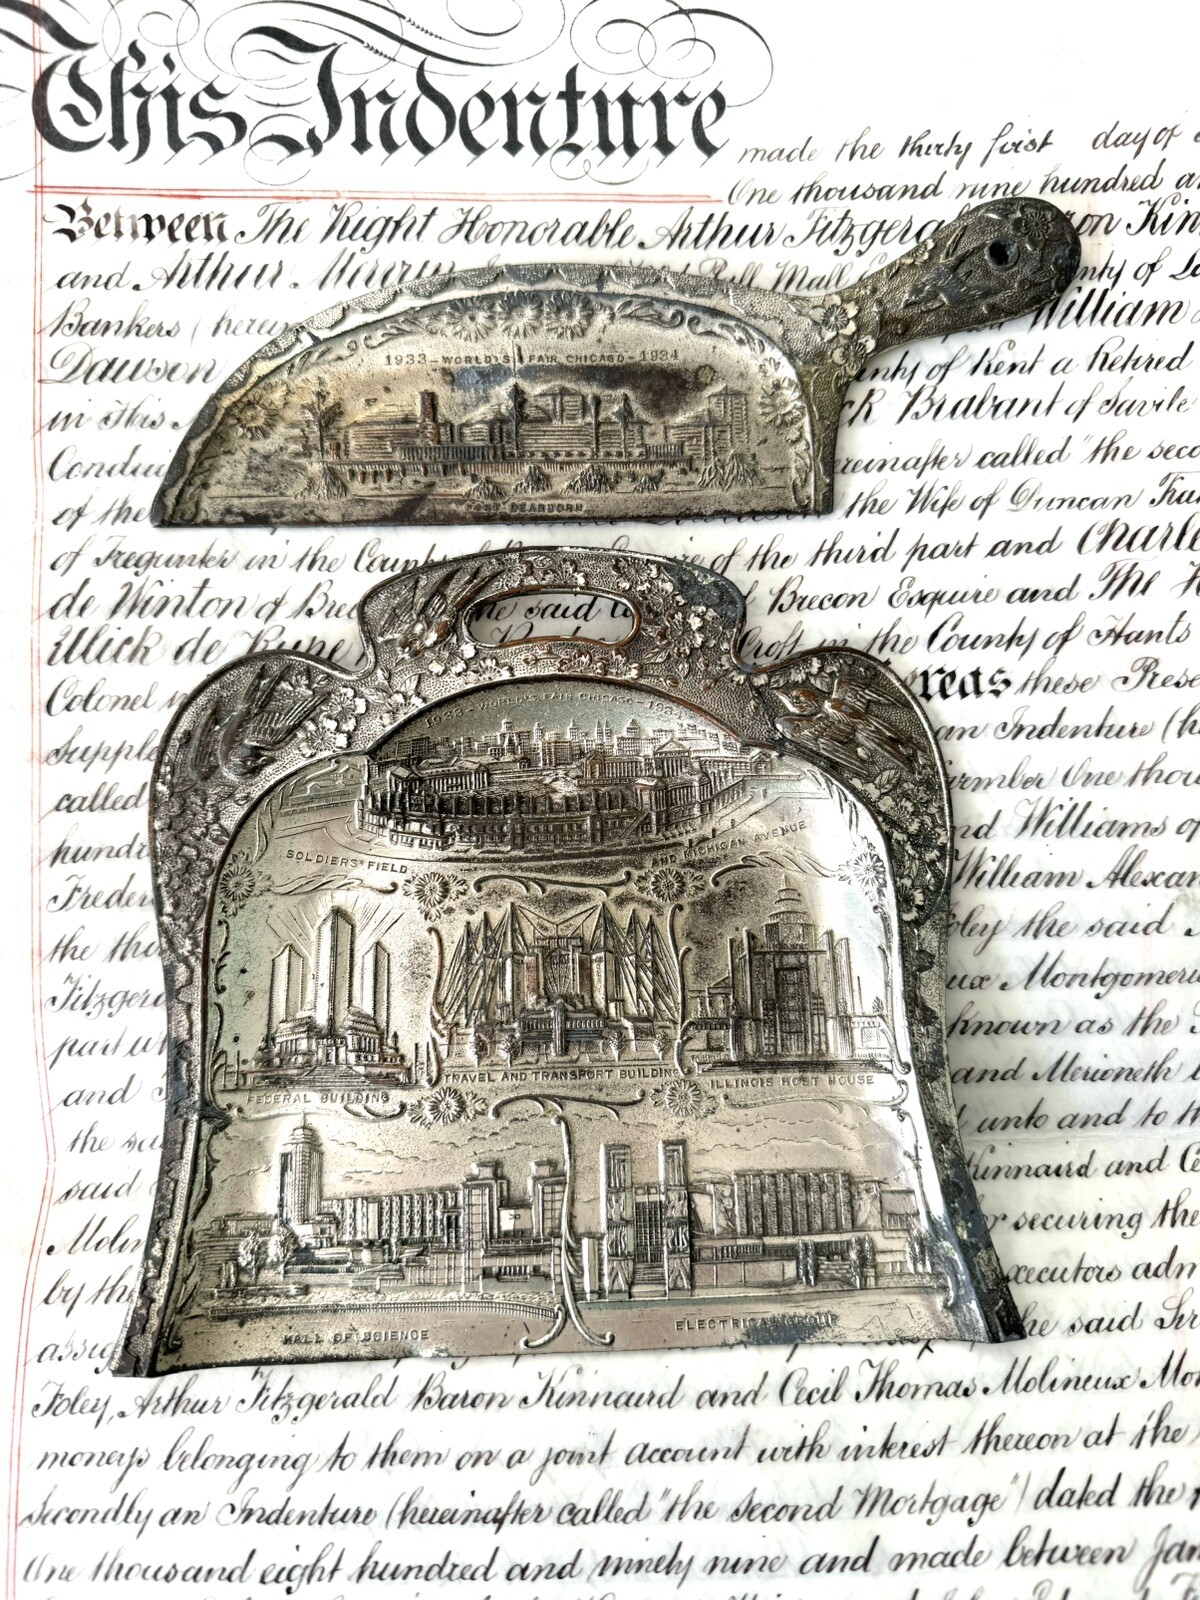 This Indenture made the thirty first day of
One thousand nine hundred
Between The Right Honorable Arthur Fitzgera
and Arthur Pall Mall nty of
Bankers (herein William
Dawson unty of Kent a Retired
in this ck Brabant of Savile
Condui ereinafter called "the seco
of the the Wife of Duncan
of Tregunter in the County of the third part and Charle
de Winton of Brec Brecon Esquire and The
Ulick de Croft in the County of Hants
Colonel reas these Prese
supple an Indenture
called One thou
hundr nd Williams of
Freder William Alexan
the thi oley the said
Fitzgera ux Montgomerie
part known as the
and and Merioneth
the sai unto and to th
said Kinnaird and Ce
Molin r securing the
by the xecutors adm
assig he said
Foley, Arthur Fitzgerald Baron Kinnaird and Cecil Thomas Molineux Mo
moneys belonging to them on a joint account with interest thereon at the
Secondly an Indenture (hereinafter called "the Second Mortgage") dated the
One thousand eight hundred and ninety nine and made between Jan
1933-WORLD'S FAIR CHICAGO-1934
FORT DEARBORN
1933-WORLD'S FAIR CHICAGO-1934
SOLDIERS' FIELD AND MICHIGAN AVENUE
FEDERAL BUILDING TRAVEL AND TRANSPORT BUILDING ILLINOIS HOST HOUSE
HALL OF SCIENCE ELECTRICAL GROUP